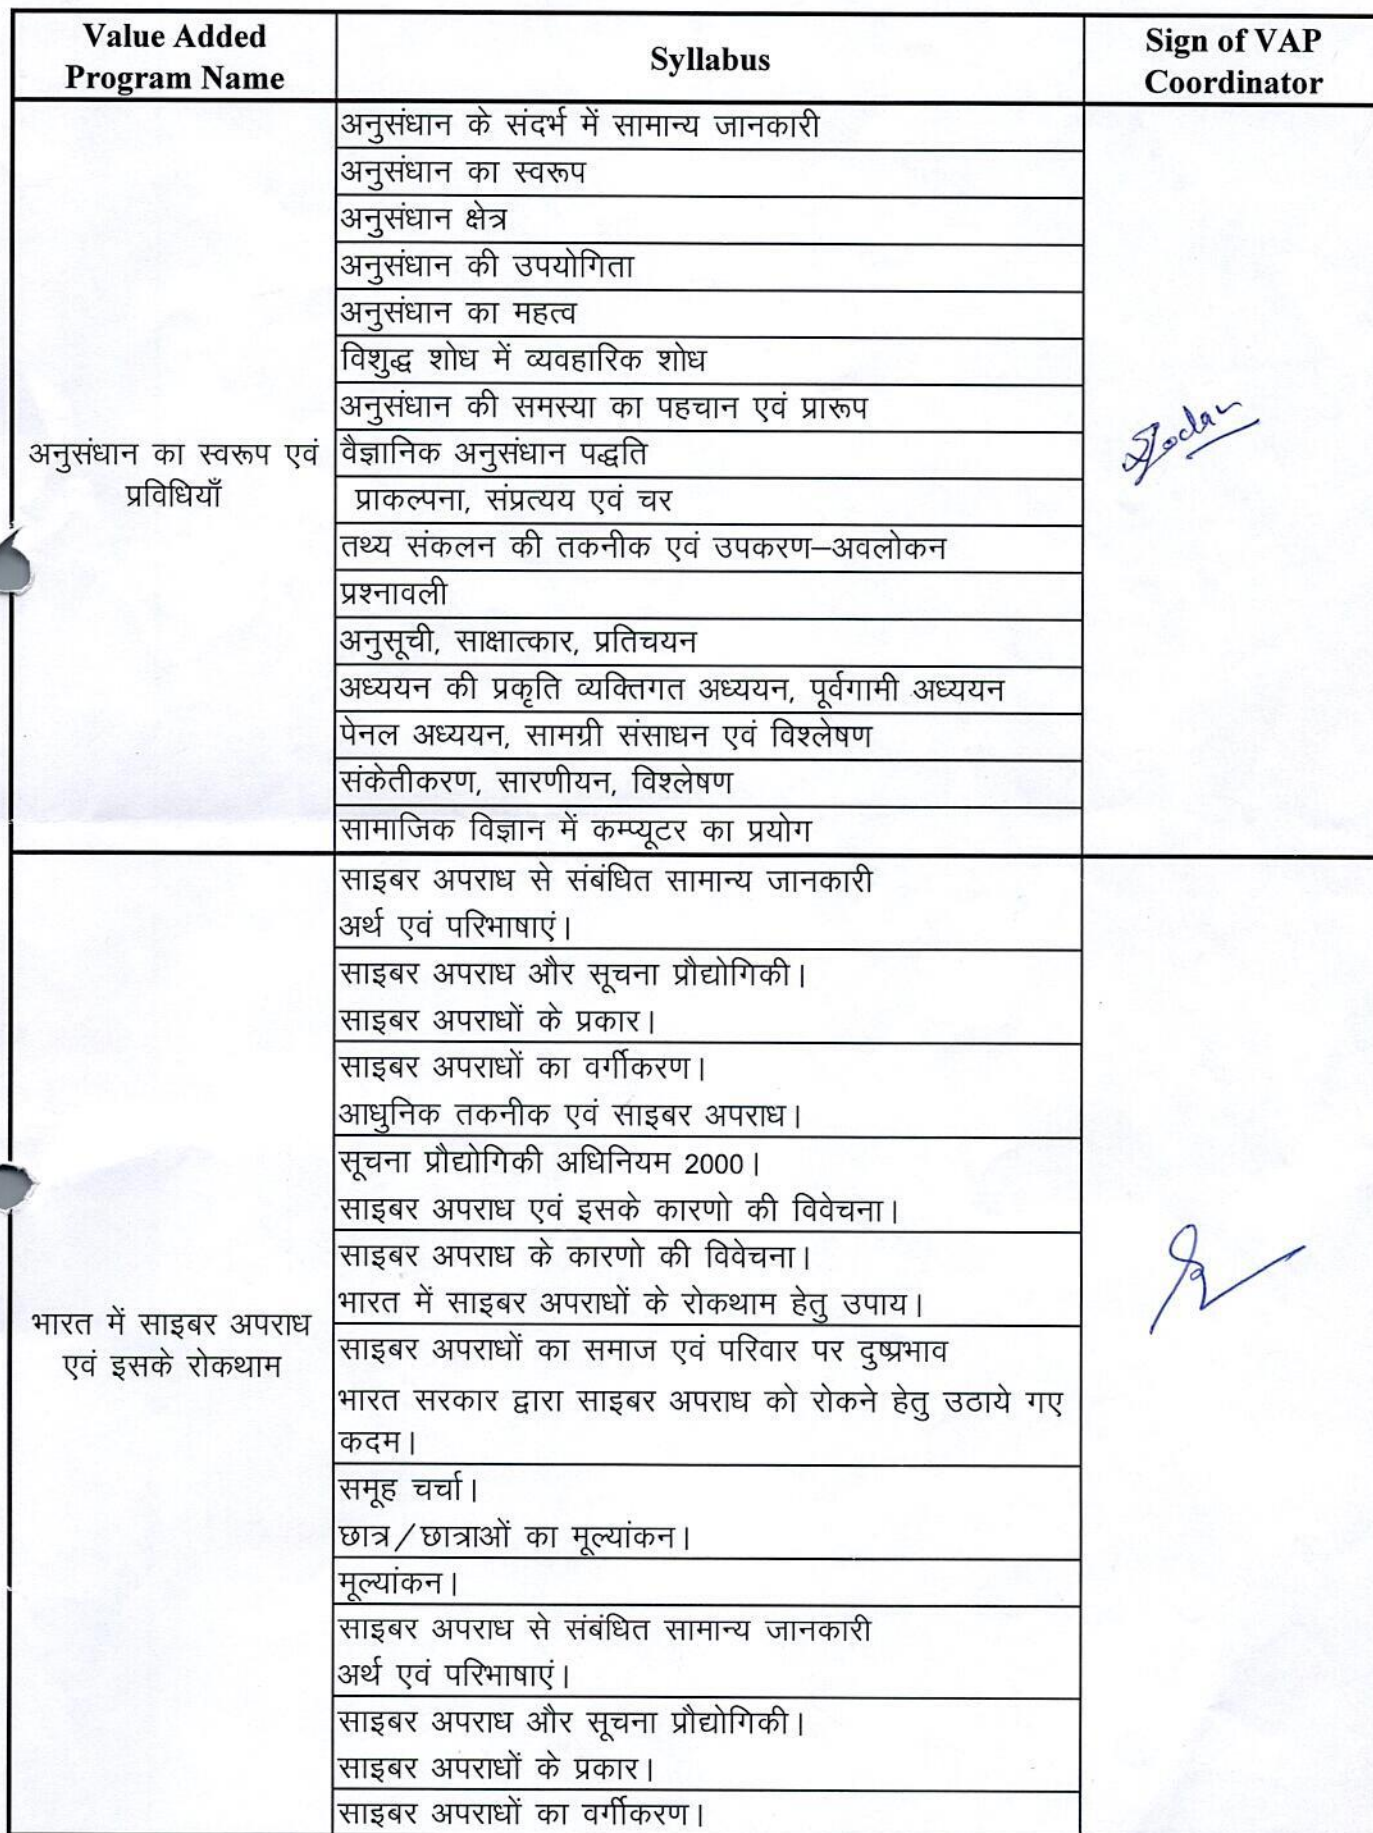 Value Added
Program Name
Syllabus
Sign of VAP
Coordinator
अनुसंधान का स्वरूप एवं
प्रविधियाँ
अनुसंधान के संदर्भ में सामान्य जानकारी
अनुसंधान का स्वरूप
अनुसंधान क्षेत्र
अनुसंधान की उपयोगिता
अनुसंधान का महत्व
विशुद्ध शोध में व्यवहारिक शोध
अनुसंधान की समस्या का पहचान एवं प्रारूप
वैज्ञानिक अनुसंधान पद्धति
प्राकल्पना, संप्रत्यय एवं चर
तथ्य संकलन की तकनीक एवं उपकरण–अवलोकन
प्रश्नावली
अनुसूची, साक्षात्कार, प्रतिचयन
अध्ययन की प्रकृति व्यक्तिगत अध्ययन, पूर्वगामी अध्ययन
पेनल अध्ययन, सामग्री संसाधन एवं विश्लेषण
संकेतीकरण, सारणीयन, विश्लेषण
सामाजिक विज्ञान में कम्प्यूटर का प्रयोग
भारत में साइबर अपराध
एवं इसके रोकथाम
साइबर अपराध से संबंधित सामान्य जानकारी
अर्थ एवं परिभाषाएं।
साइबर अपराध और सूचना प्रौद्योगिकी।
साइबर अपराधों के प्रकार।
साइबर अपराधों का वर्गीकरण।
आधुनिक तकनीक एवं साइबर अपराध।
सूचना प्रौद्योगिकी अधिनियम 2000।
साइबर अपराध एवं इसके कारणो की विवेचना।
साइबर अपराध के कारणो की विवेचना।
भारत में साइबर अपराधों के रोकथाम हेतु उपाय।
साइबर अपराधों का समाज एवं परिवार पर दुष्प्रभाव
भारत सरकार द्वारा साइबर अपराध को रोकने हेतु उठाये गए
कदम।
समूह चर्चा।
छात्र/छात्राओं का मूल्यांकन।
मूल्यांकन।
साइबर अपराध से संबंधित सामान्य जानकारी
अर्थ एवं परिभाषाएं।
साइबर अपराध और सूचना प्रौद्योगिकी।
साइबर अपराधों के प्रकार।
साइबर अपराधों का वर्गीकरण।